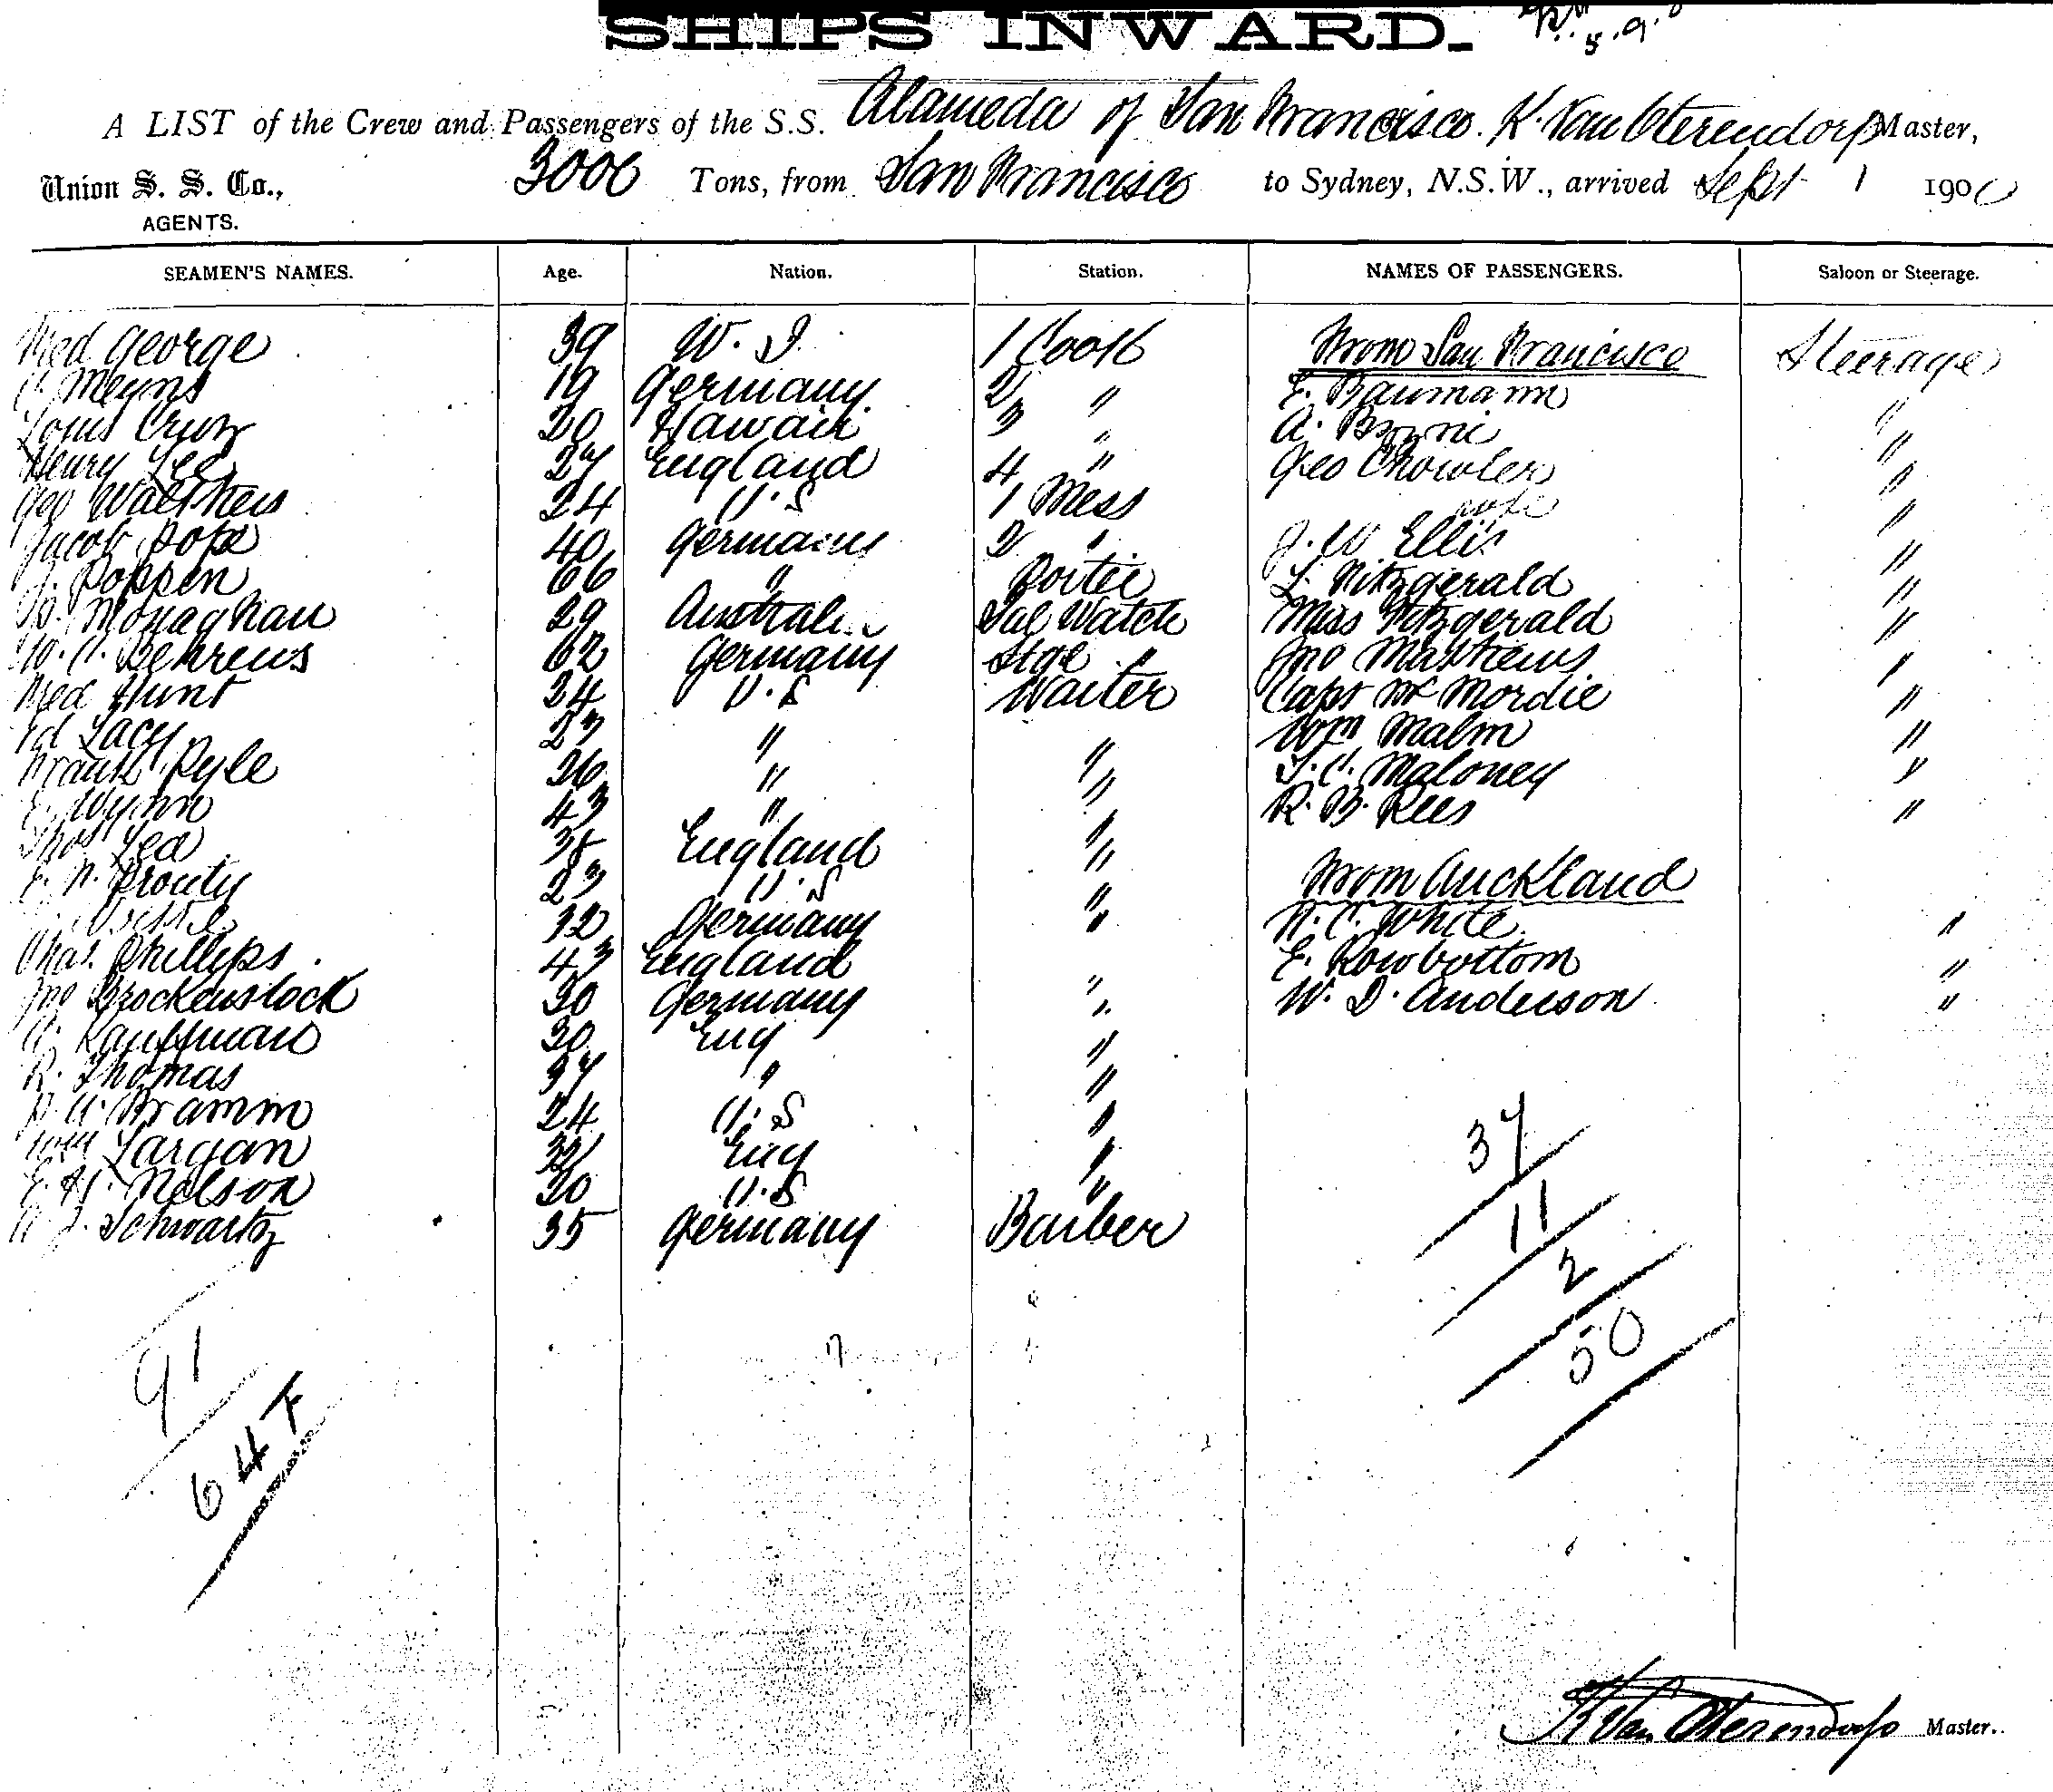 SHIPS INWARD.
5.9.0
A LIST of the Crew and Passengers of the S.S. Alameda of San Francisco. K. Van Oterendorp Master,
Union S. S. Co., 3000 Tons, from San Francisco to Sydney, N.S.W., arrived Sept 1 1900
AGENTS.
SEAMEN'S NAMES. Age. Nation. Station. NAMES OF PASSENGERS. Saloon or Steerage.
Fred George 39 W. I. 1 Cook From San Francisco Steerage
Meyns 19 Germany 2 " E. Baumann "
Louis Cruz 20 Hawaii 3 " A. "
Henry Lee 27 England 4 " Geo Chowler "
Geo Walthers 24 U.S 1 Mess wife "
Jacob Pope 40 Germany 2 " J. W Ellis "
J. Poppen 66 " Porter L. Fitzgerald "
Monaghan 29 Australia Sal Watch Miss Fitzgerald "
W. C. Behrens 62 Germany Stge " Jno Matthews "
Fred Hunt 34 U.S Waiter Capt McMordie "
Ed Lacy 23 " " Wm Malm "
Frank Pyle 26 " " T. C. Maloney "
E. Wynn 43 " " R. B. Rees "
Thos Lea 38 England "
E. F. Prouty 23 U.S " From Auckland
32 Germany " F. C. White "
Chas. Phillips 43 England E. Rowbottom "
Jno Brockenslock 30 Germany " W. D. Anderson "
A. Kauffman 30 Eng "
R. Thomas 37 " "
Bramm 24 U.S "
Wm Largan 32 Eng "
E. H. Nelson 20 U.S "
Schwartz 35 Germany Barber
37
11
2
50
91
64 F
K Van Oterendorp Master.